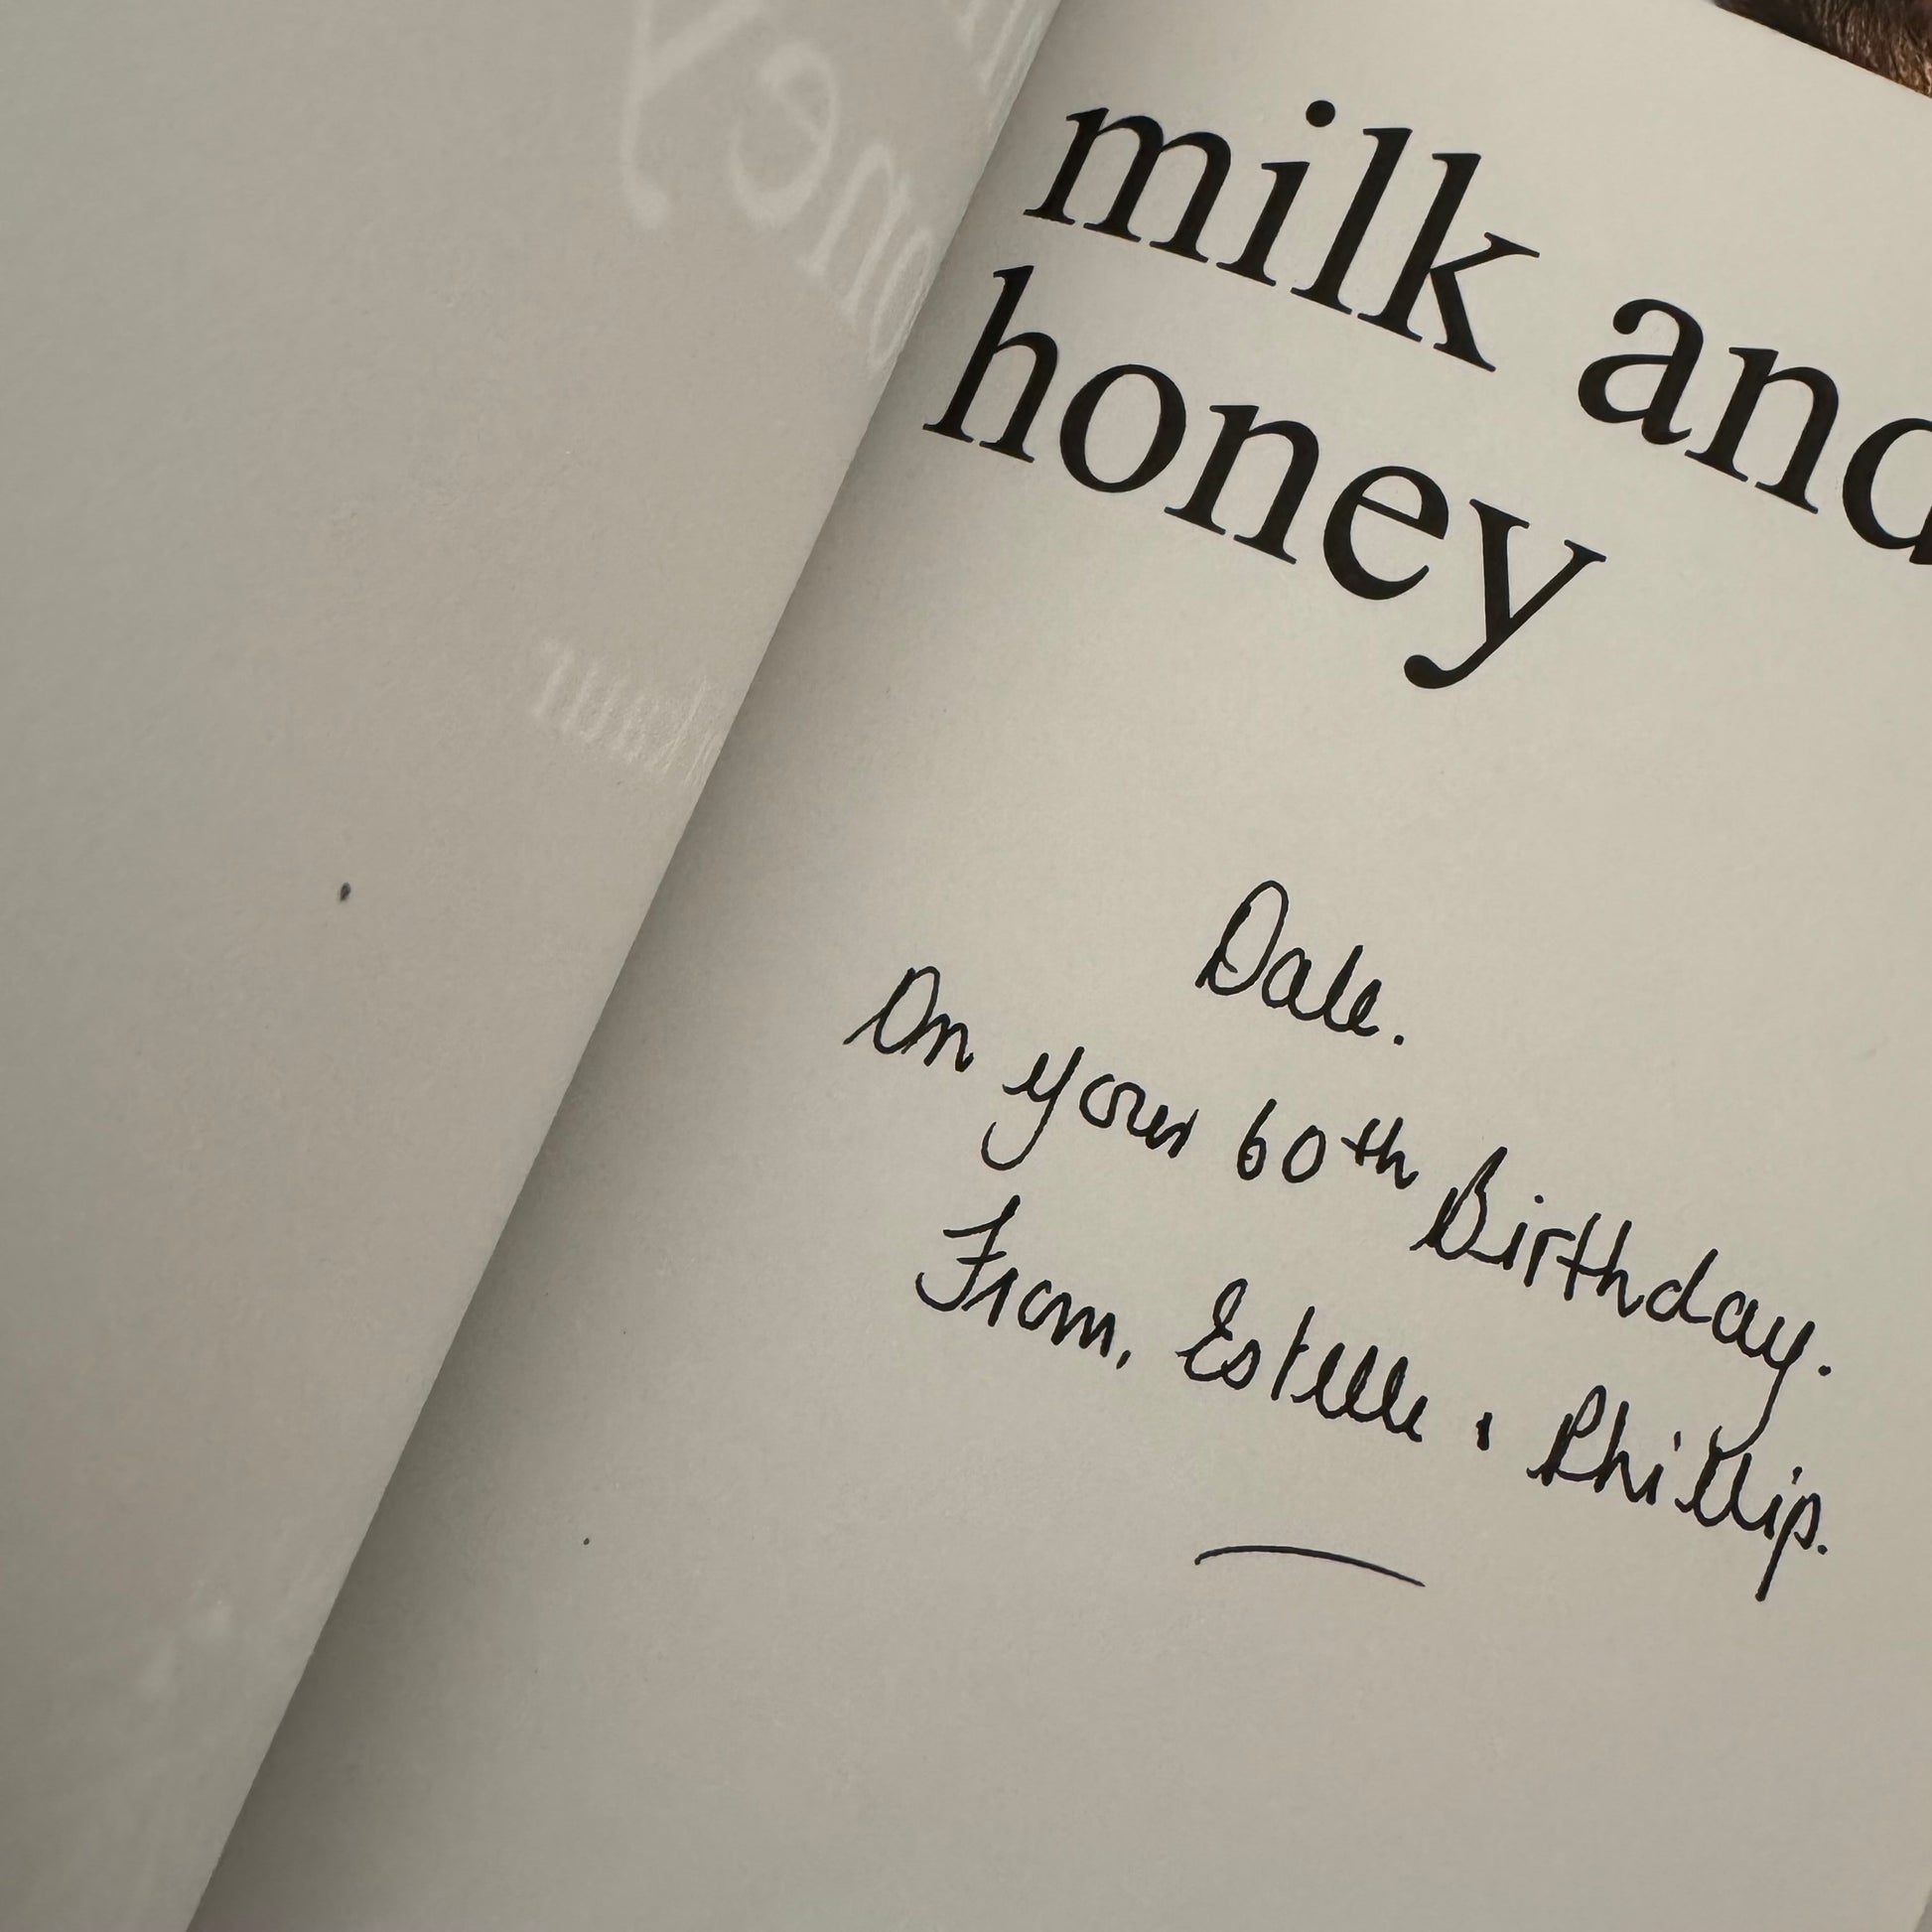 milk and
honey
Dale.
On your 60th Birthday.
From, Estelle & Phillip.